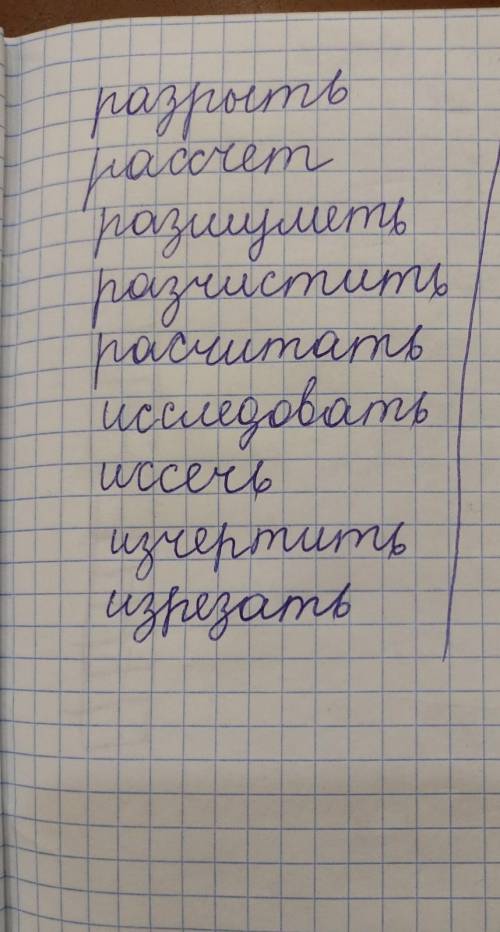 разрыть
рассчет
разшуметь
разчистить
расчитать
исследовать
иссечь
изчертить
изрезать